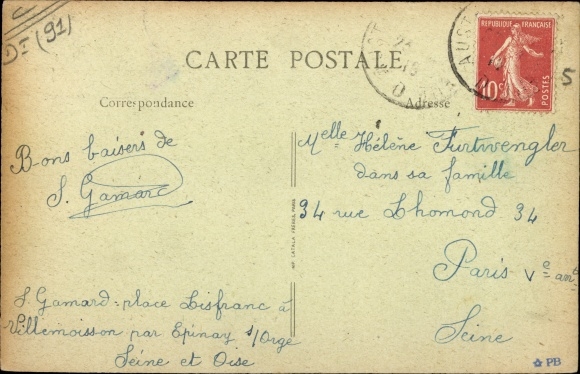 Dt (91)
CARTE POSTALE
RÉPUBLIQUE FRANÇAISE
10c
POSTES
AUST
5
Correspondance
Adresse
Bons baisers de
S. Gamard
Melle Hélène Furtwengler
dans sa famille
34 rue Lhomond 34
Paris Ve arrt
Seine
S Gamard place Lisfranc à
Villemoisson par Epinay s/Orge
Seine et Oise
IMP. CATALA FRÈRES, PARIS
PB